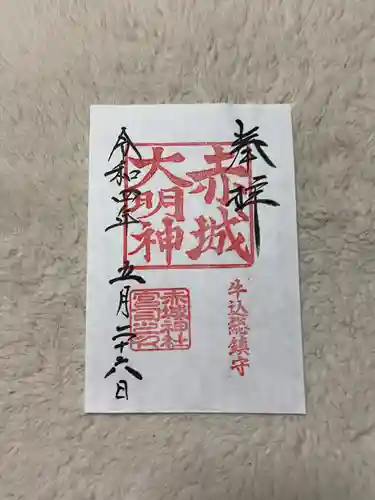 奉拝
赤城
大明神
牛込総鎮守
赤城神社
宮司之印
五月二十六日